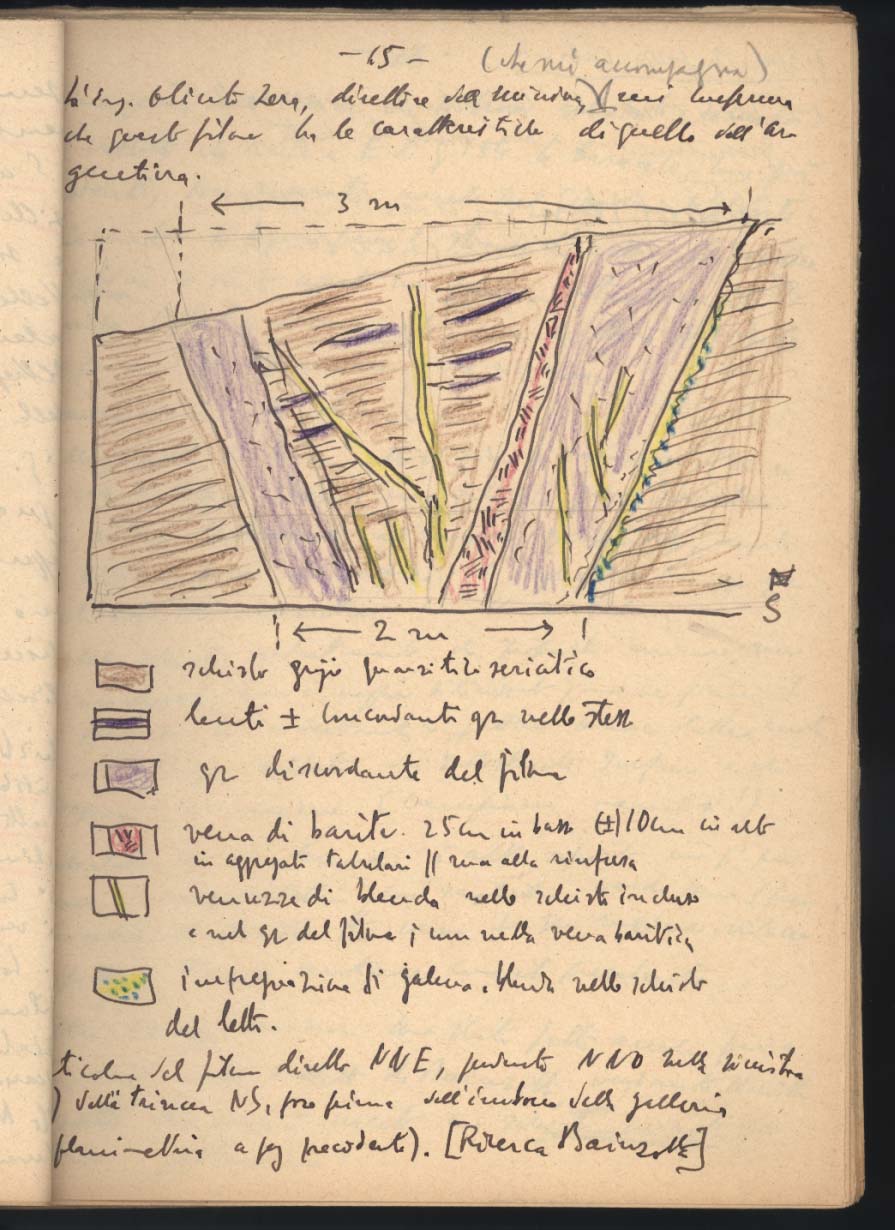 -15- (che mi accompagna)
L'ing. Zera, direttore della miniera, mi conferma
che questo filone ha le caratteristiche di quello dell'Ar
gentiera.
3 m
S
2 m
schisto grigio quarzitico sericitico
lenti ± concordanti qz nello stesso
qz discordante del filone
vena di barite. 25cm in basso (±) 10cm in alto
in aggregati tabulari // ma alla rinfusa
venuzze di blenda nello schisto incluso
e nel qz del filone; una nella vena baritica
impregnazione di galena e blenda nello schisto
del letto.
del filone diretto NNE, pendente NNO nella sinistra
) della trincea NS, poco prima dell'imbocco della galleria
planimetria a pag precedente). [Ricerca